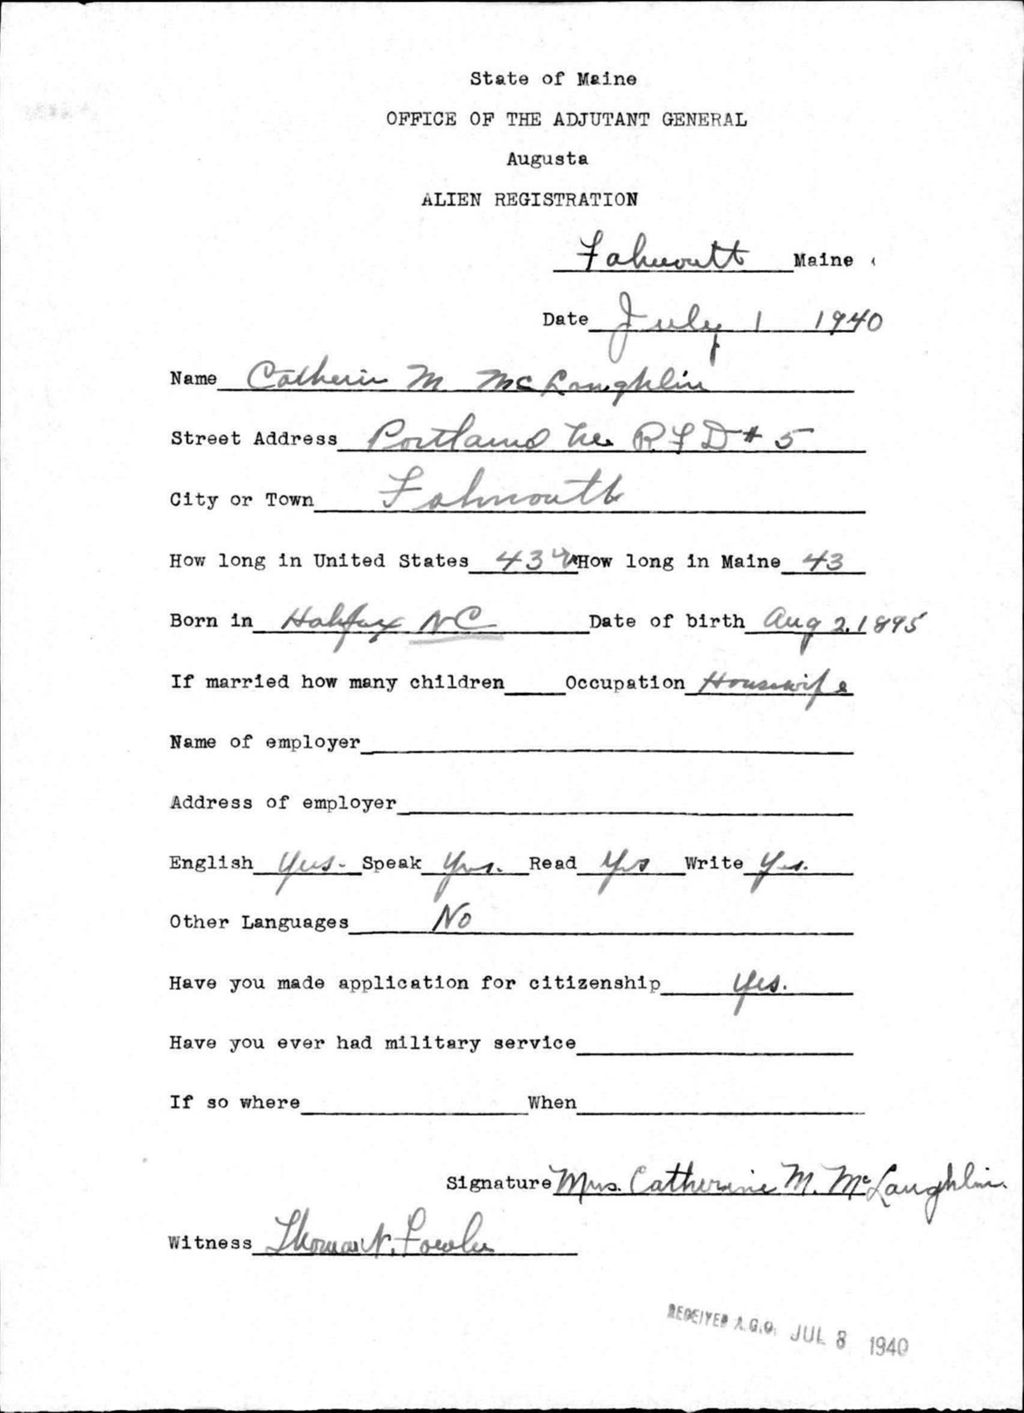 State of Maine
OFFICE OF THE ADJUTANT GENERAL
Augusta
ALIEN REGISTRATION
Falmouth Maine
Date July 1 1940
Name Catherin M McLaughlin
Street Address Portland RFD # 5
City or Town Falmouth
How long in United States 43 How long in Maine 43
Born in Halifax NC Date of birth Aug 2, 1895
If married how many children Occupation Housewife
Name of employer
Address of employer
English Yes- Speak Yes. Read Yes Write Yes.
Other Languages No
Have you made application for citizenship Yes.
Have you ever had military service
If so where When
Signature Mrs. Catherine M. McLaughlin
Witness Thomas N. Fowler
RECEIVED A.G.O. JUL 8 1940